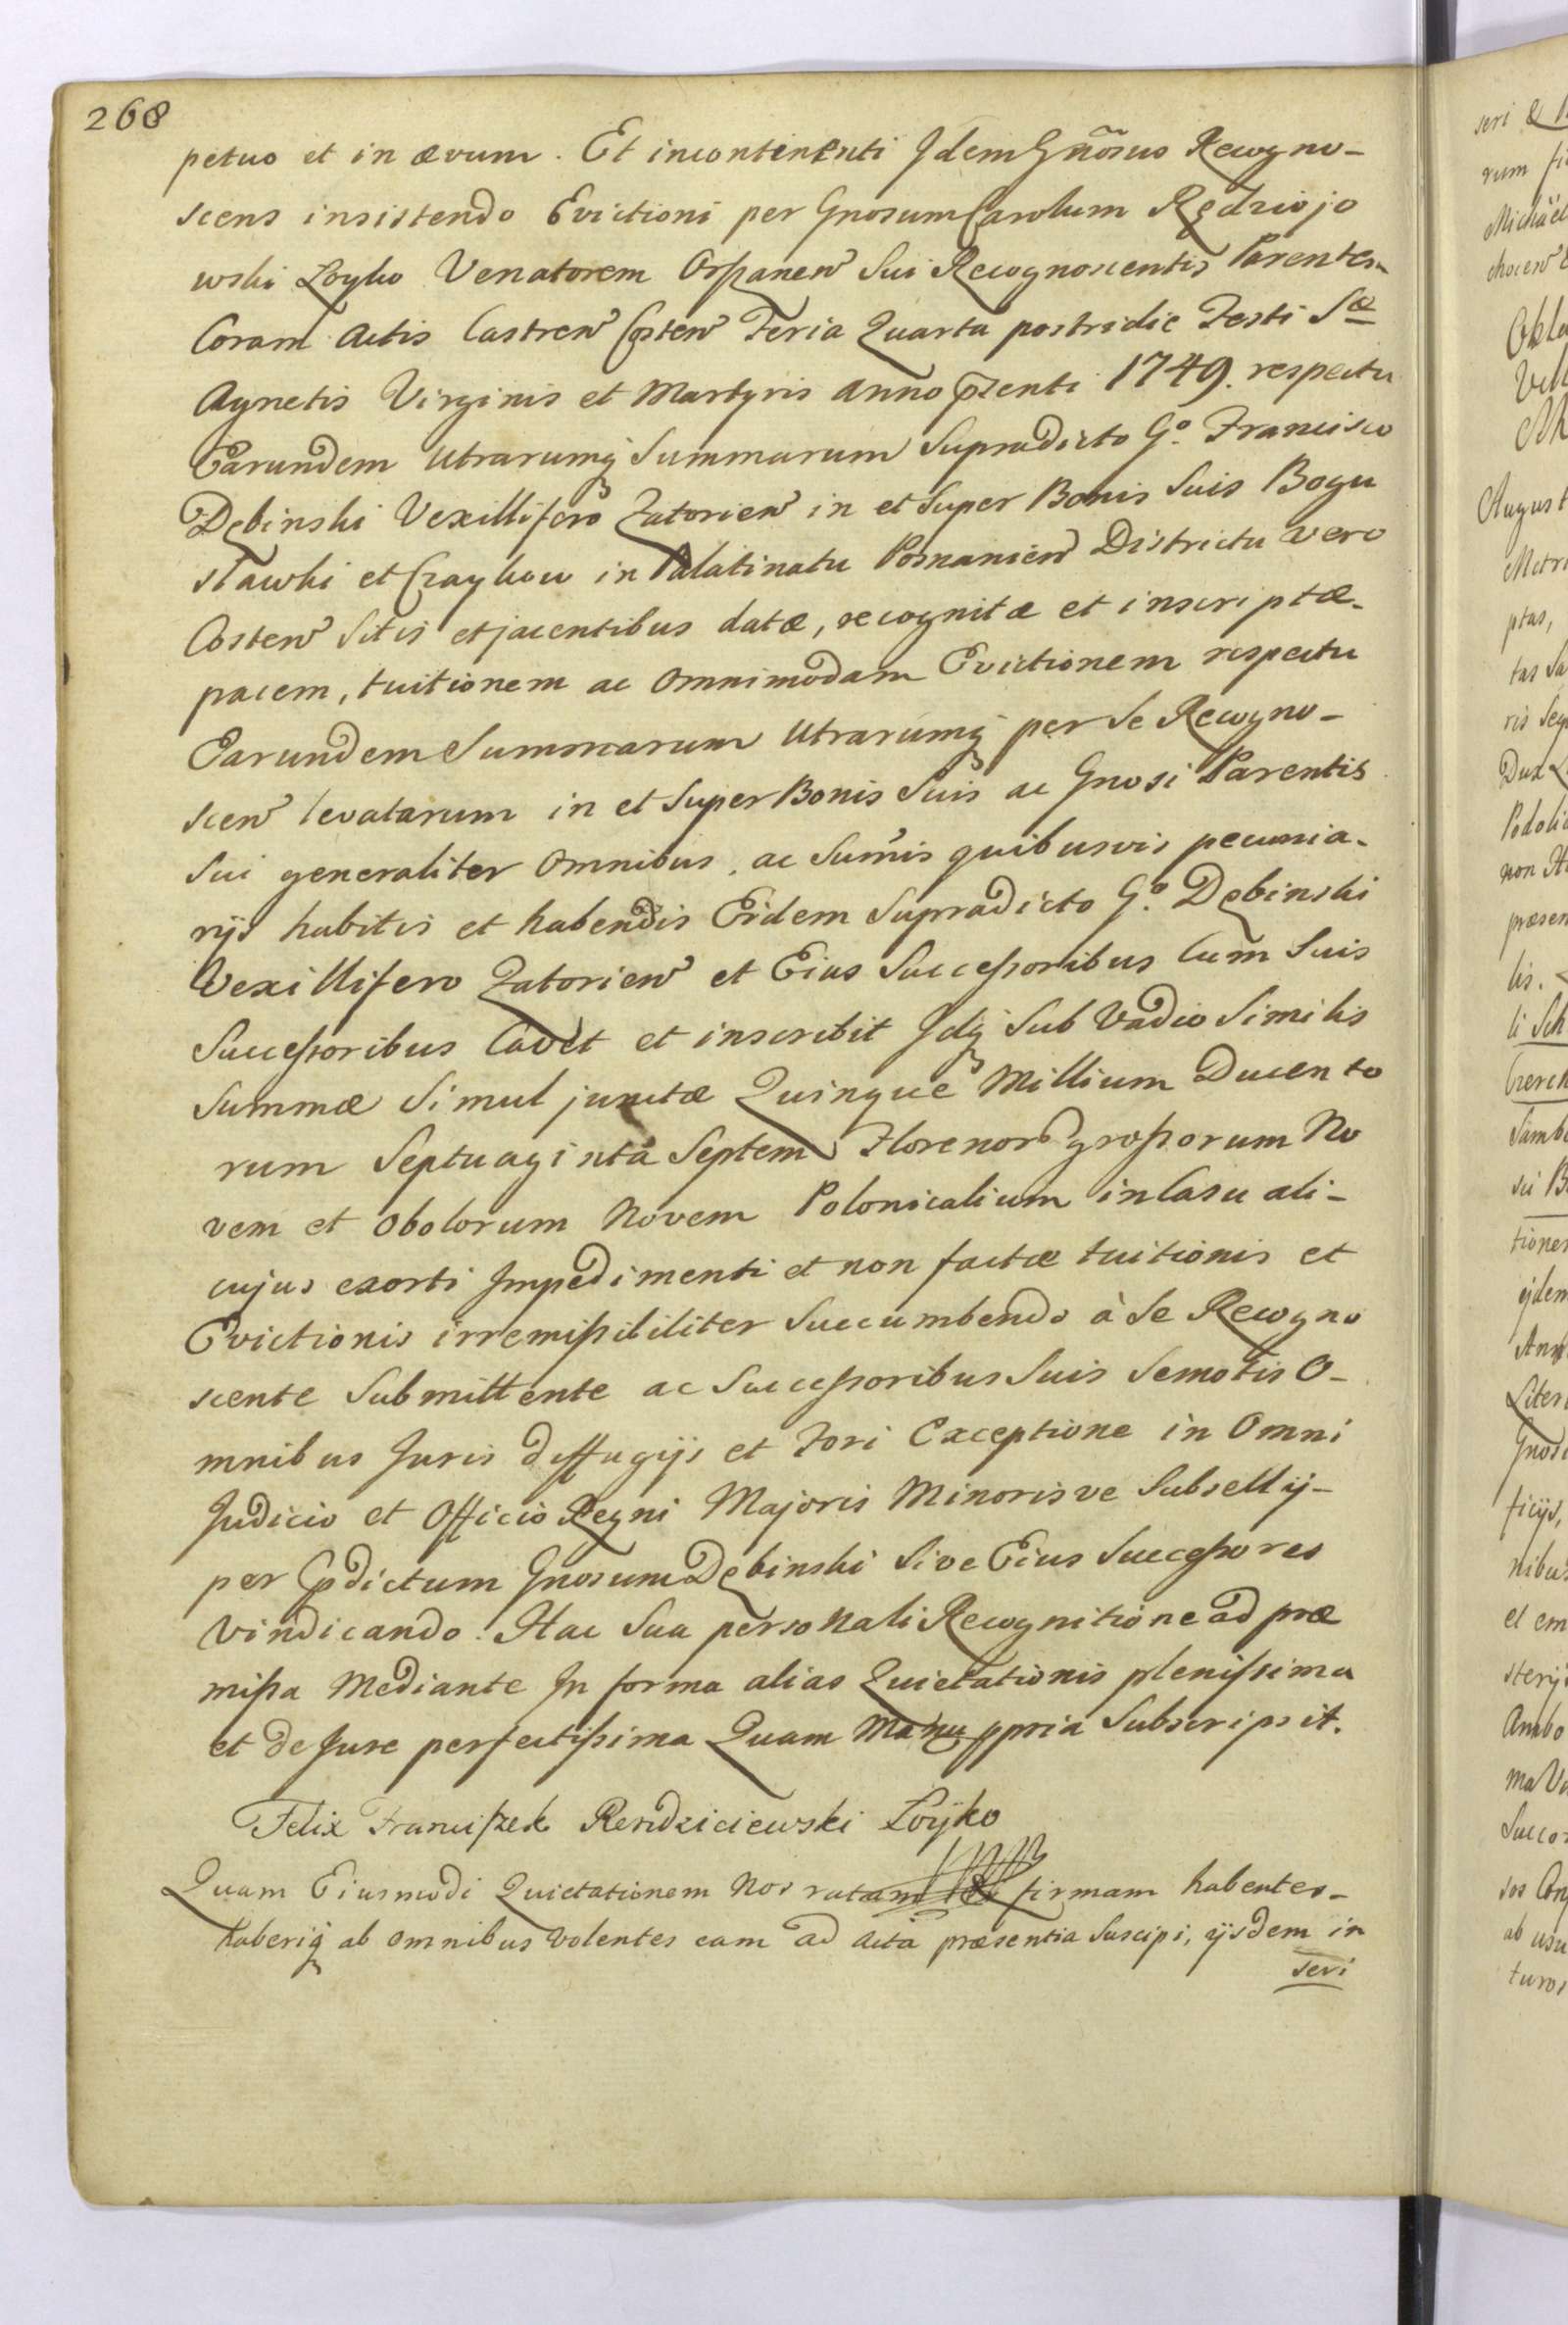 268
petuo et in ævum. Et incontinenti Jdem Gnõsus Recogno-
scens insistendo Evictioni per Gnosum Carolum Rędziejo
wski Łoyko Venatorem Orszanen Sui Recognoscentis Parentem
Coram Actis Castren Costen Feria Quarta postridie Festi Sæ
Agnetis Virginis et Martyris Anno przenti 1749. respectu
Earundem Utrarumq Summarum Supradicto G.o Francisco
Dębinski Vexillifero Zatorien in et Super Bonis Suis Bogu
sławki et Czaykow in Palatinatu Posnanien Districtu vero
Costen Sitis et jacentibus datæ, recognitæ et inscriptæ.
pacem, tuitionem ac Omnimodam Evictionem respectu
Earundem Summarum Utrarumq per Se Recogno-
scen levatarum in et Super Bonis Suis ac Gnosi Parentis
Sui generaliter Omnibus, ac Sum̃is quibusvis pecunia-
rijs habitis et habendis Eidem Supradicto G.o Dębinski
Vexillifero Zatorien et Eius Successoribus Cum Suis
Successoribus Cavet et inscribit Jdq Sub Vadio Similis
Summæ Simul junctæ Quinque Millium Ducento
rum Septuaginta Septem Florenor grossorum No
vem et Obolorum Novem Polonicalium in Casu ali-
cujus exorti Jmpedimenti et non factæ tuitionis et
Evictionis irremissibiliter Succumbendo à Se Recogno
scente Submittente ac Successoribus Suis Semotis O-
mnibus Juris diffugijs et Fori Exceptione in Omni
Judicio et Officio Regni Majoris Minorisve Subsellij-
per pdictum Gnosum Dębinski Sive Eius Successores
Vindicando. Hac Sua personali Recognitione ad præ
missa Mediante Jn forma alias Quietationis plenissima
et de Jure perfectissima Quam Manu ppria Subscripsit.
Felix Franciszek Rendzieiewski Łoyko
Quam Eiusmodi Quietationem Nos ratam firmam habentes-
haberiq ab omnibus Volentes eam ad Acta præsentia Suscipi, ijsdem in
seri